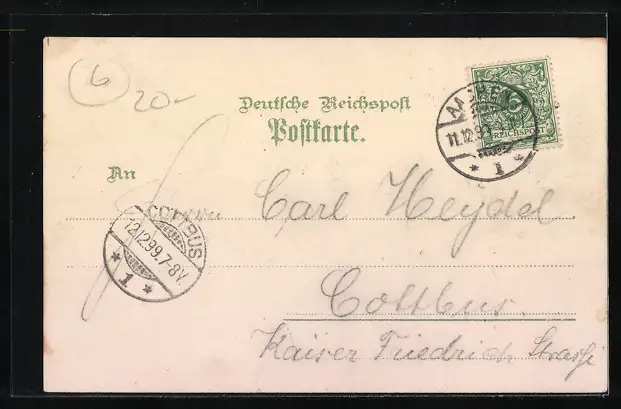 6
20-
Deutsche Reichspost
Postkarte.
AACHEN
11.12.99
1
5
REICHSPOST
An
Herrn Carl Heydel
COTTBUS
12.12.99.7-8V.
1
Cottbus.
Kaiser Friedrich Straße